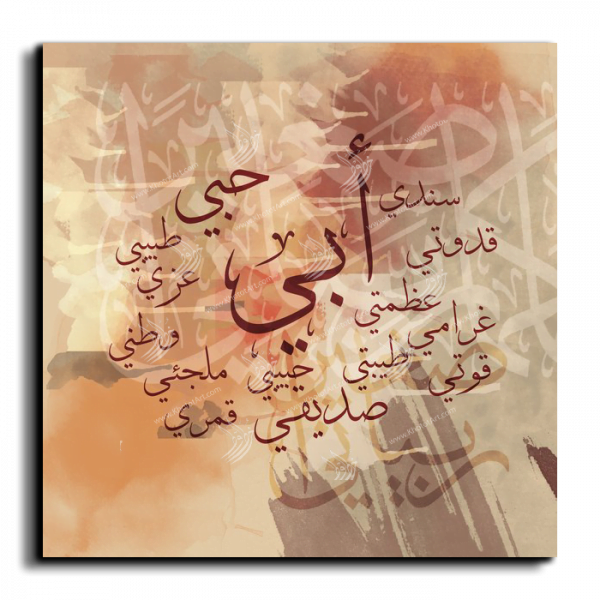 حبي
أبي
سندي
قدوتي
طبيبي
عزي
عظمتي
غرامي
وطني
ملجئي
حبيبي
طيبتي
قوتي
صديقي
قمري